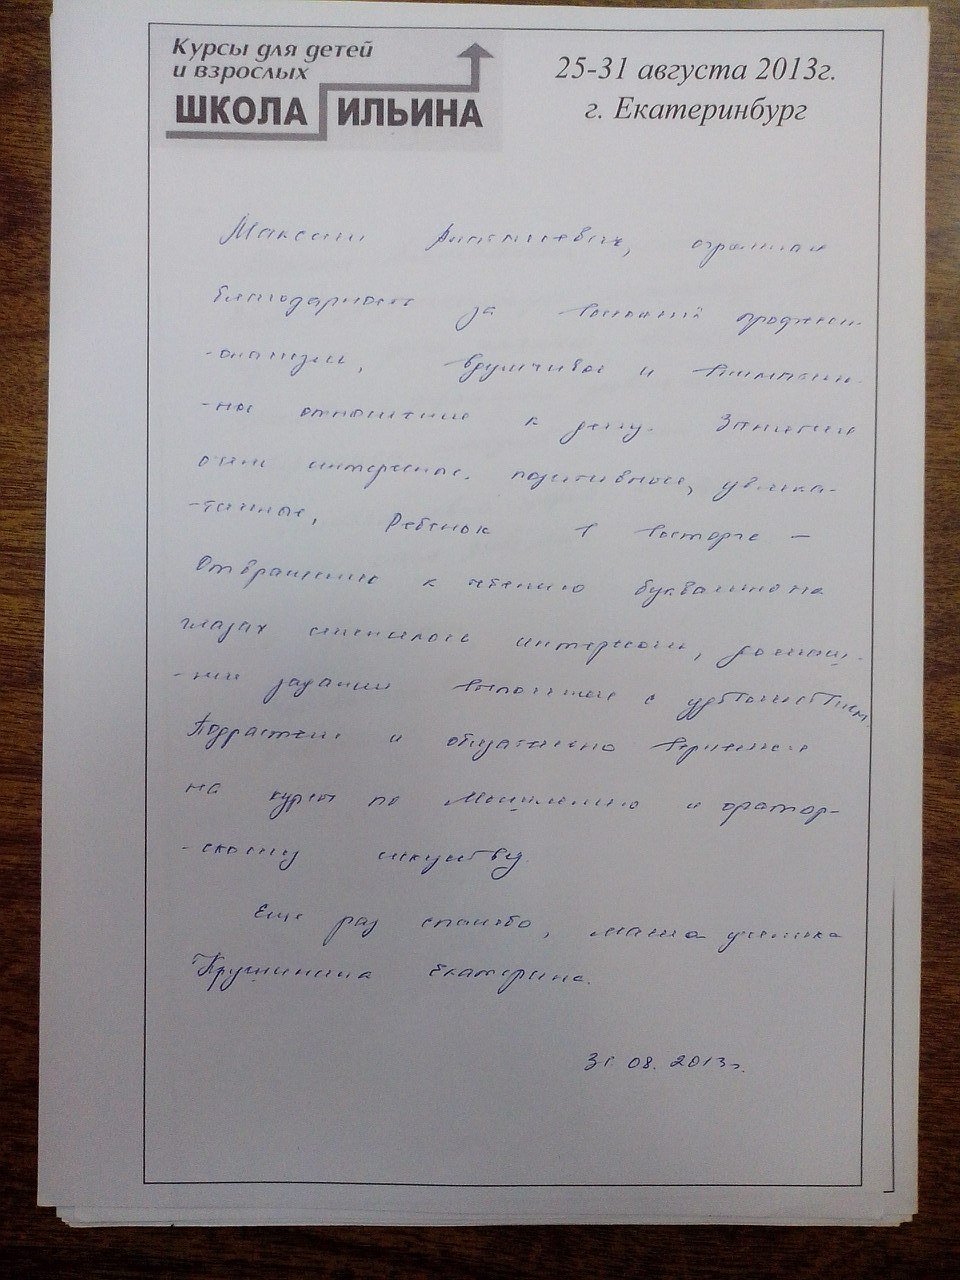 Курсы для детей
и взрослых
ШКОЛА ИЛЬИНА
25-31 августа 2013г.
г. Екатеринбург
Максим Анатольевич, огромная
благодарность за высокий професси-
-онализм, вдумчивое и вниматель-
-ное отношение к делу. Занятия
очень интересные, позитивные, увлека-
-тельные, Ребенок в восторге –
Отвращение к чтению буквально на
глазах сменилось интересом, домаш-
-ние задания выполняет с удовольствием
Подрастем и обязательно вернемся
на курсы по Мышлению и оратор-
-скому искуству.
Еще раз спасибо, мама ученика
Екатерина.
31 08. 2013г.